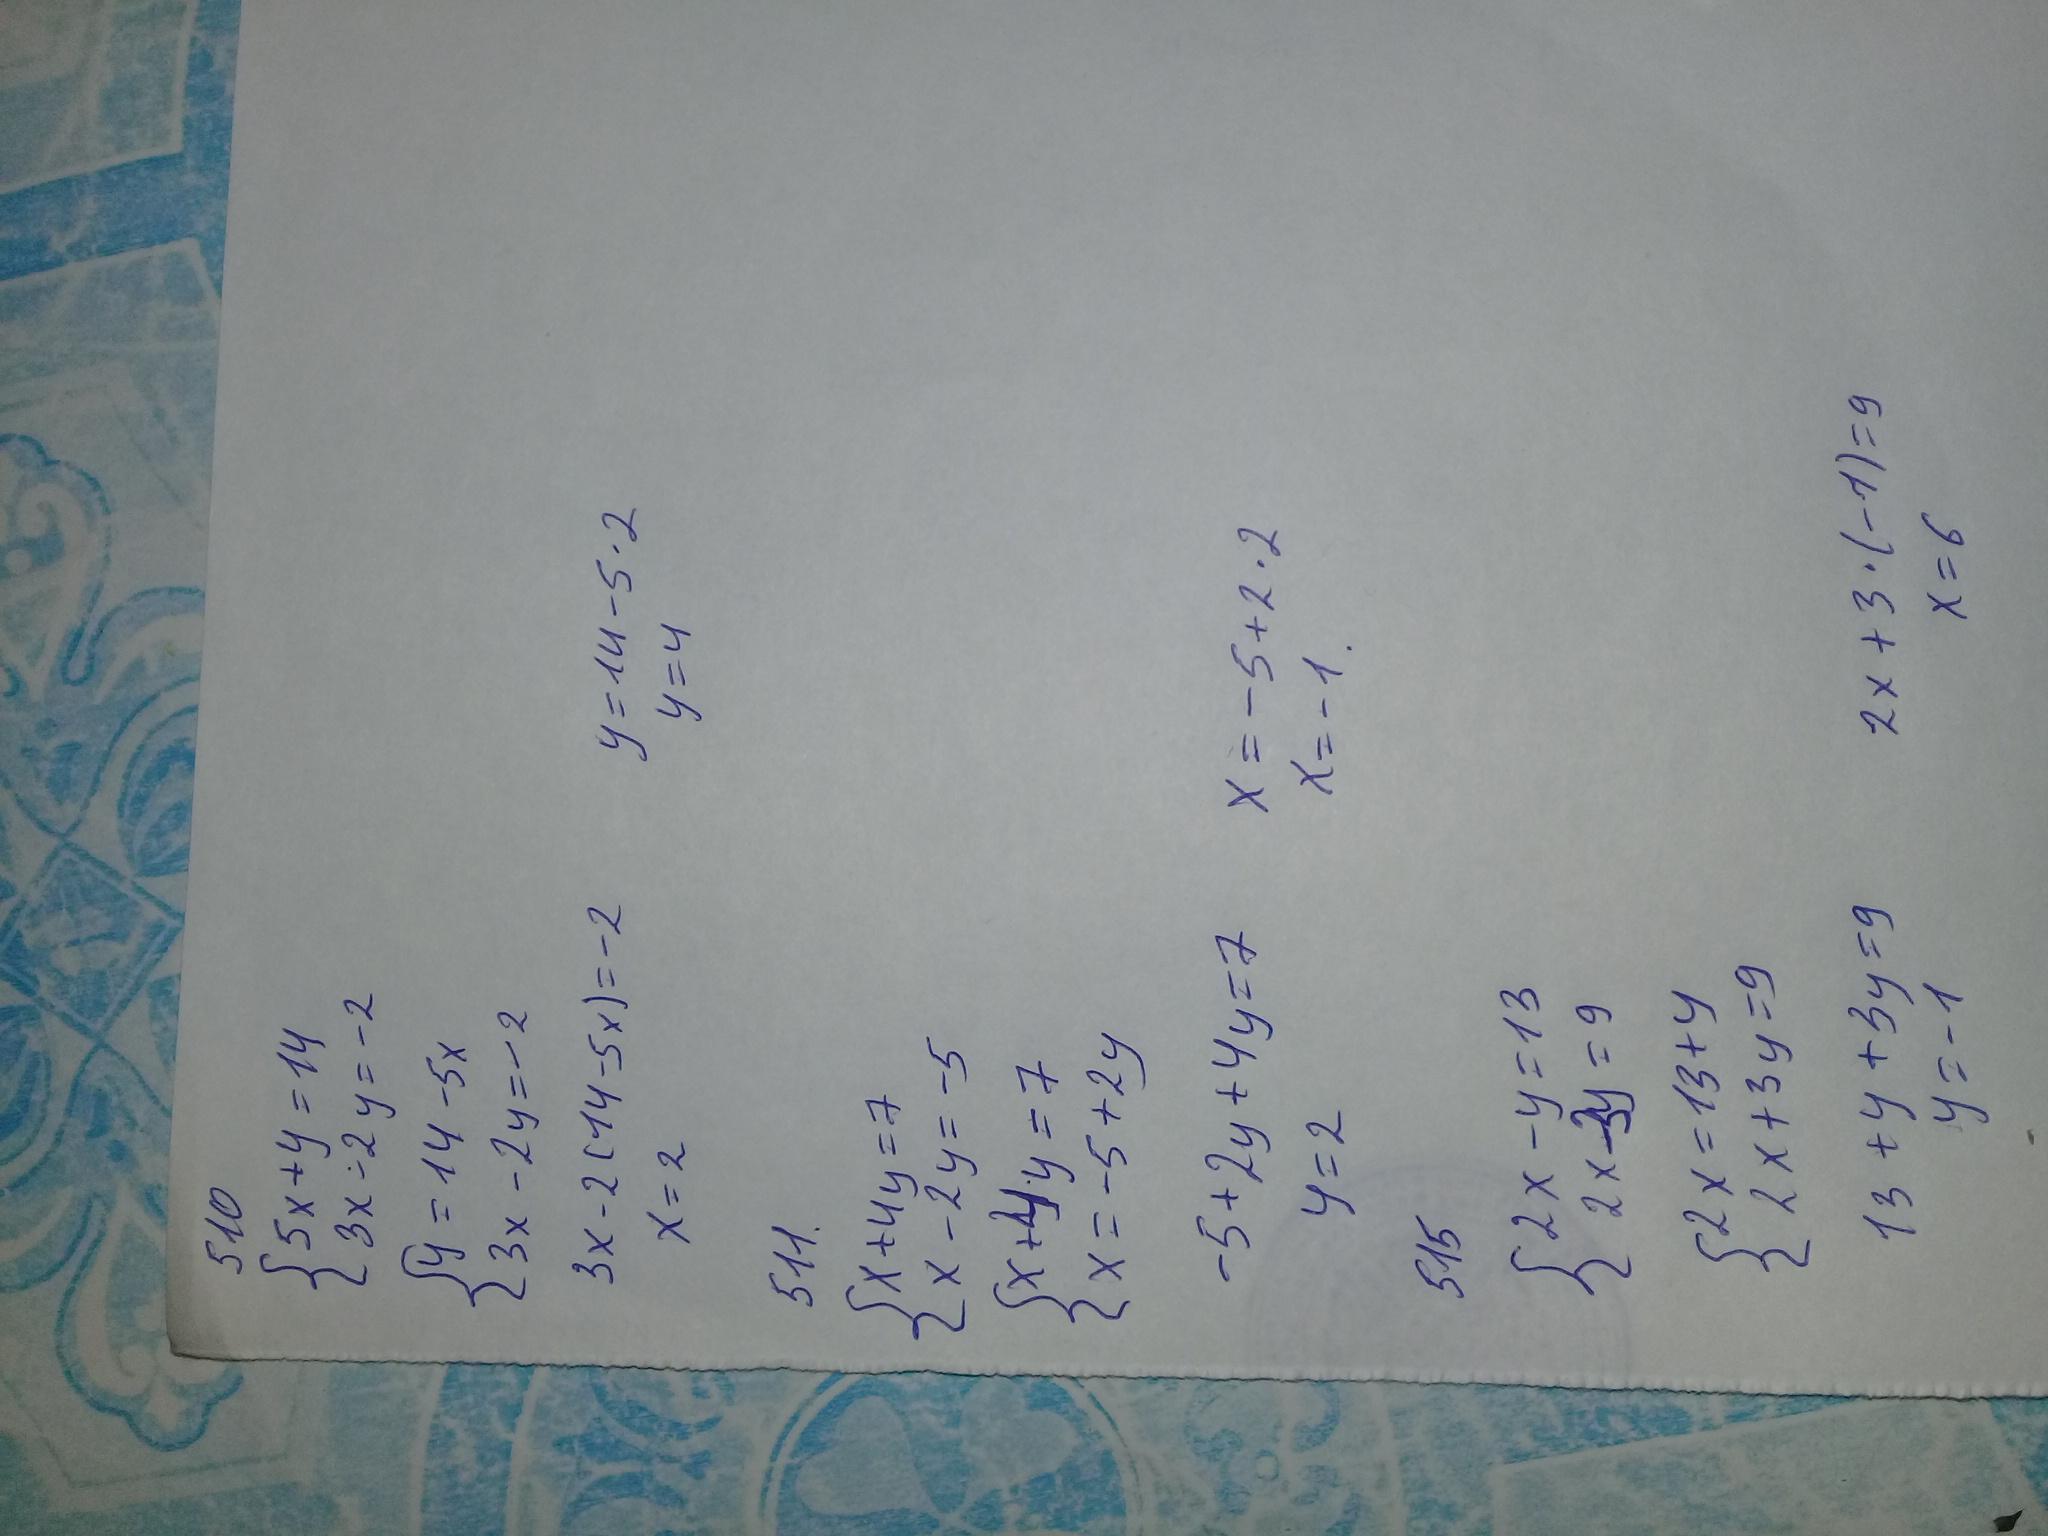 510
{5x+y=14
3x-2y=-2
{y=14-5x
3x-2y=-2
3x-2(14-5x)=-2 y=14-5·2
x=2 y=4
511.
{x+4y=7
x-2y=-5
{x+4y=7
x=-5+2y
-5+2y+4y=7 x=-5+2·2
y=2 x=-1.
515
{2x-y=13
2x-3y=9
{2x=13+y
2x+3y=9
13+y+3y=9 2x+3·(-1)=9
y=-1 x=6